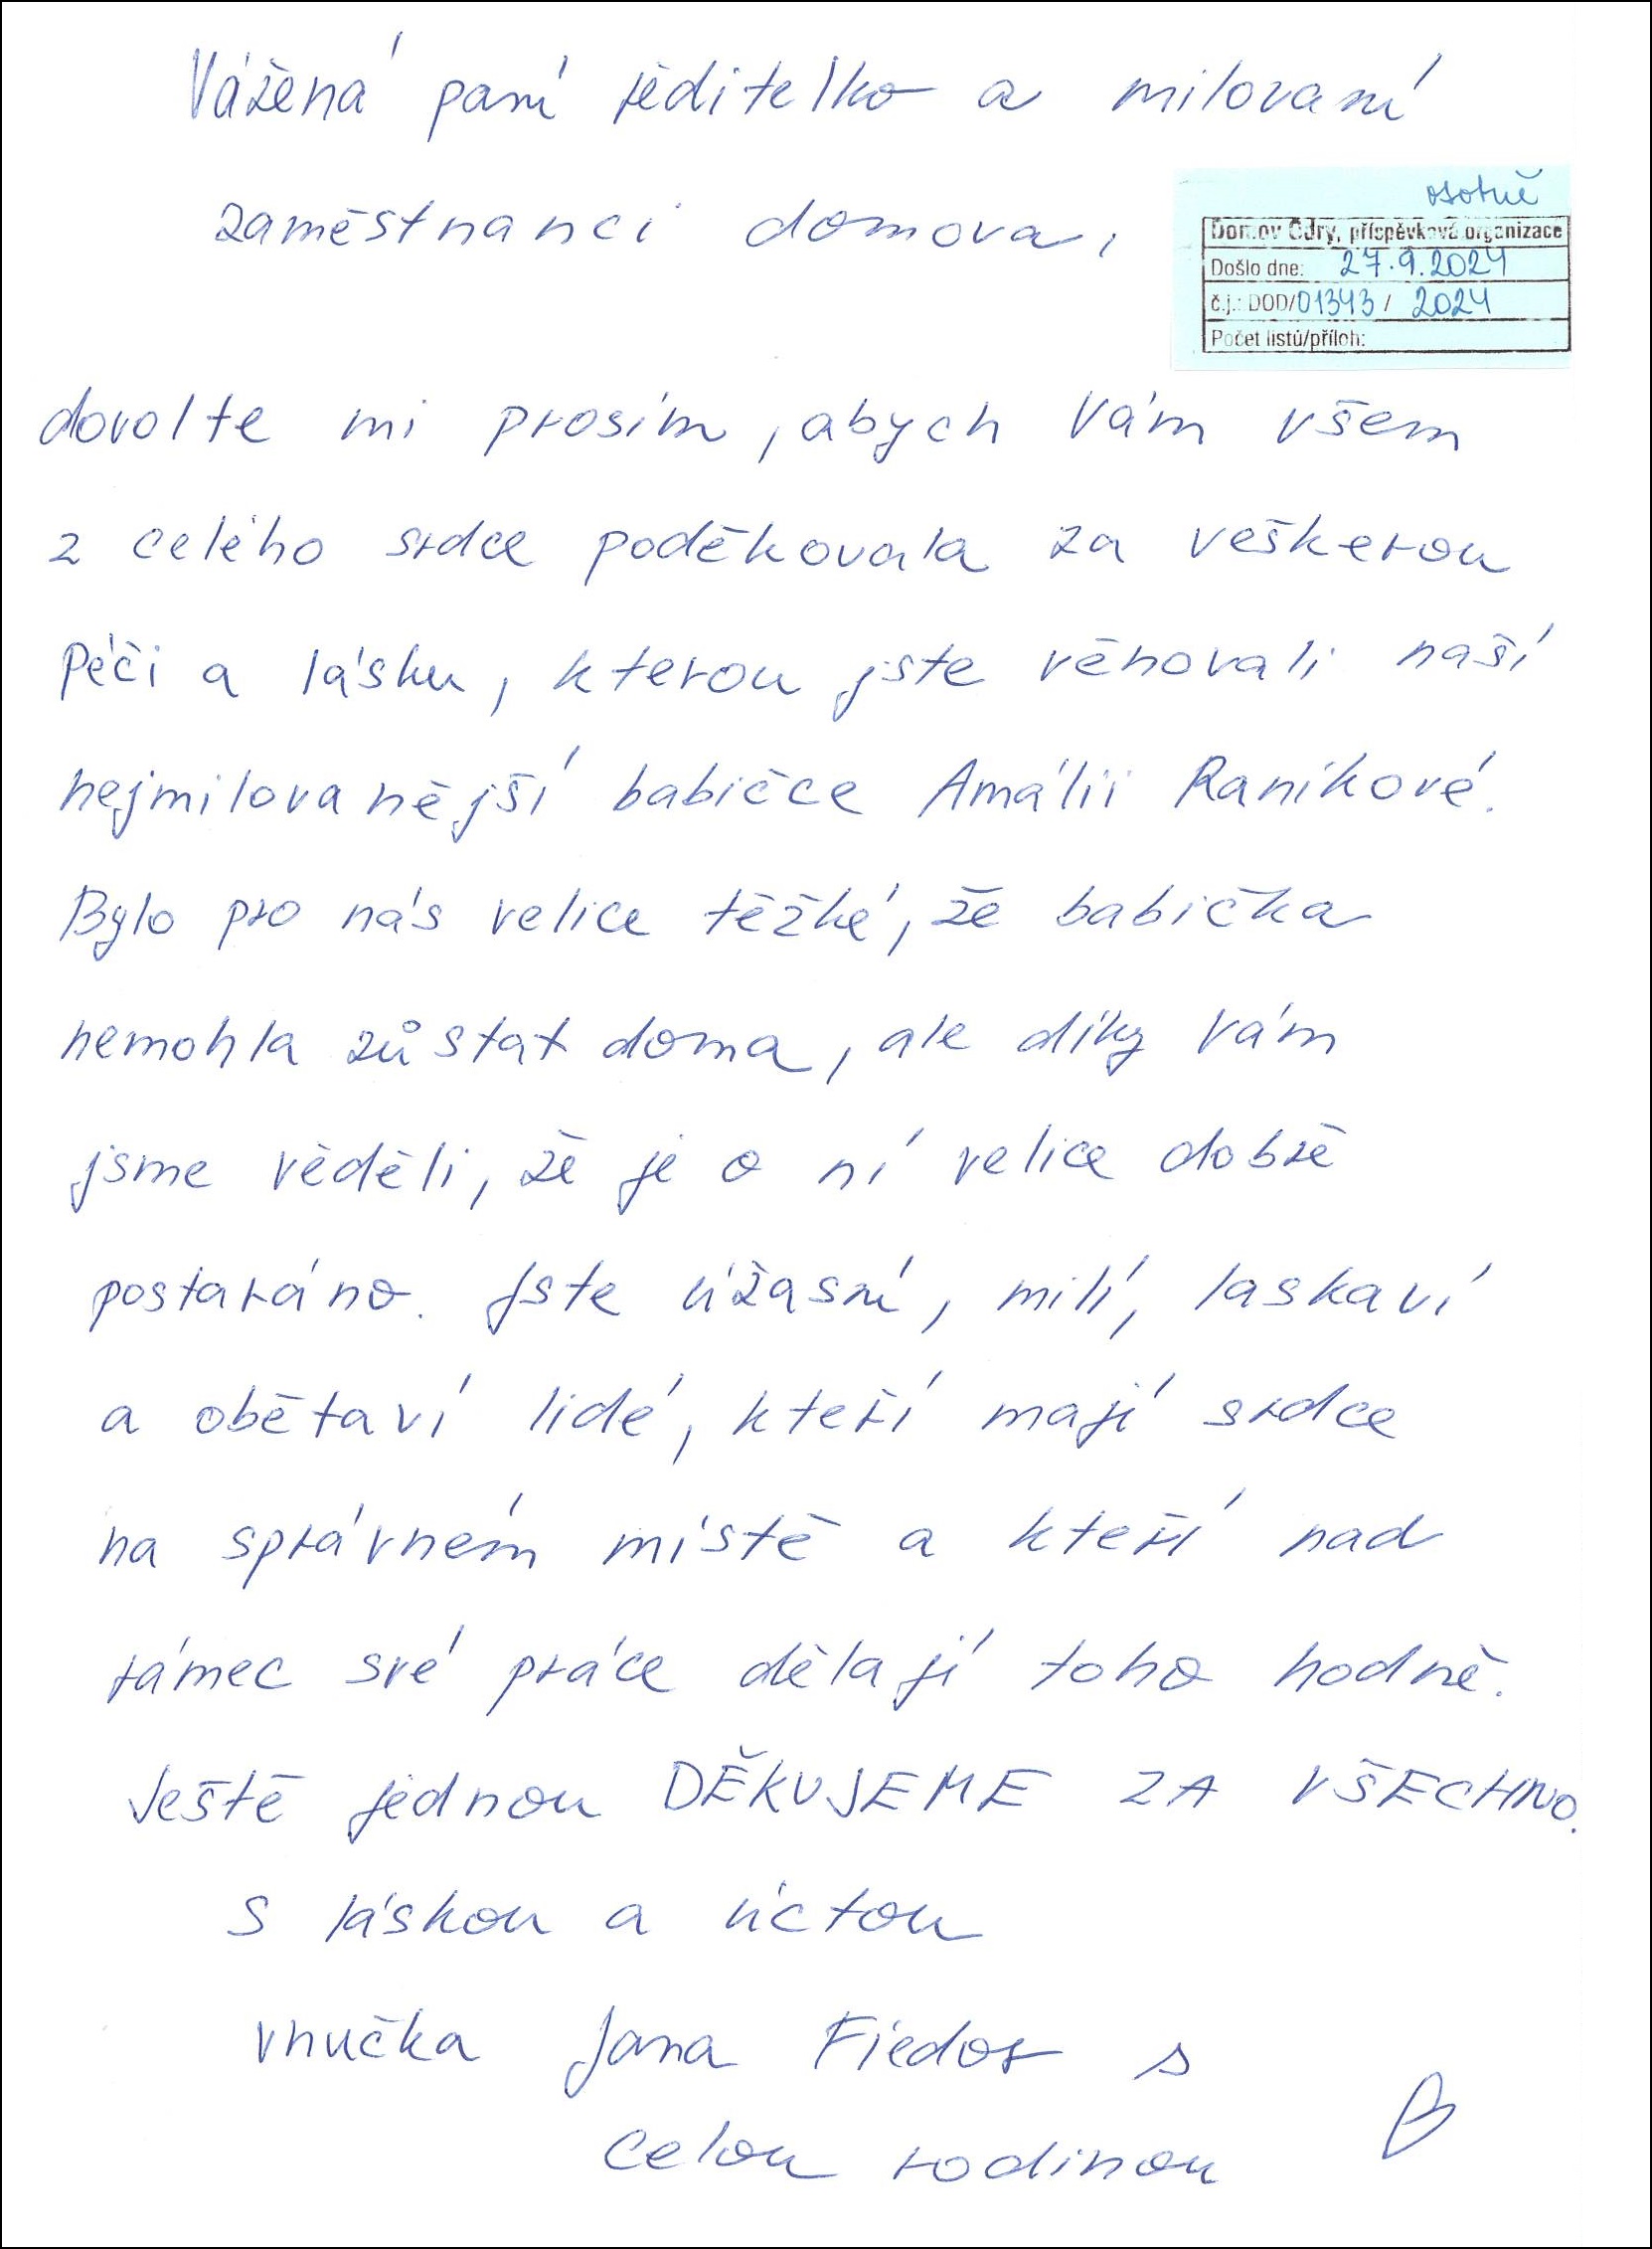 Vážená paní ředitelko a milovaní
zaměstnanci domova,
osobně
Domov Odry, příspěvková organizace
Došlo dne: 27.9.2024
č.j.: DOD/01343/ 2024
Počet listů/příloh:
dovolte mi prosím, abych Vám všem
z celého srdce poděkovala za veškerou
péči a lásku, kterou jste věnovali naší
nejmilovanější babičce Amálii Raníkové.
Bylo pro nás velice těžké, že babička
nemohla zůstat doma, ale díky Vám
jsme věděli, že je o ní velice dobře
postaráno. Jste úžasní, milí, laskaví
a obětaví lidé, kteří mají srdce
na správném místě a kteří nad
rámec své práce dělají toho hodně.
Ještě jednou DĚKUJEME ZA VŠECHNO.
S láskou a úctou
vnučka Jana Fiedor s
celou rodinou